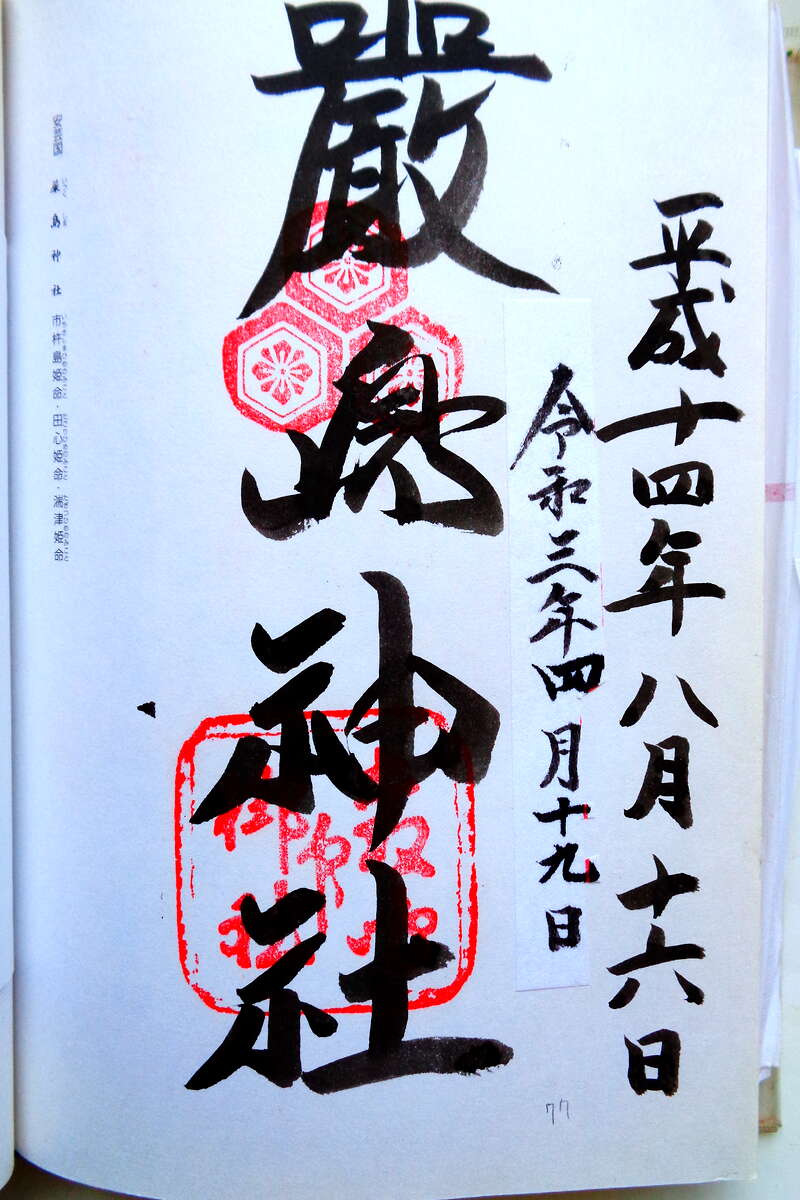 平成十四年八月十六日
令和三年四月十九日
嚴嶋神社
安芸国 厳島神社 市杵島姫命・田心姫命・湍津姫命
77